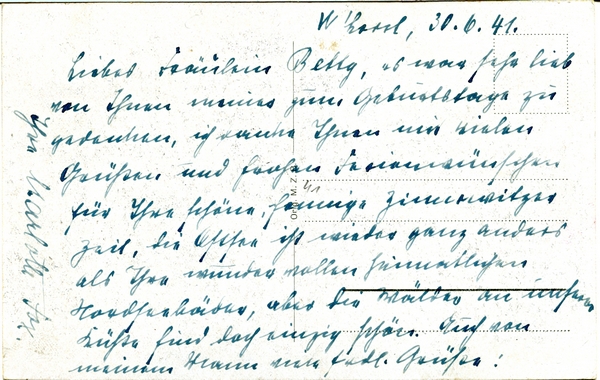 W'horst, 30.6.41.
Liebes Fräulein Betty, es war sehr lieb
von Ihnen meiner zum Geburtstage zu
gedenken, ich danke Ihnen mit vielen
Grüßen und frohen Ferienwünschen
für Ihre schöne, sonnige Zinnowitzer
Zeit, die Ostsee ist wieder ganz anders
als Ihre wundervollen heimatlichen
Nordseebäder, aber die Wälder an unserer
Küste sind doch einzig schön. Auch von
meinem Mann viele frdl. Grüße!
Ihre